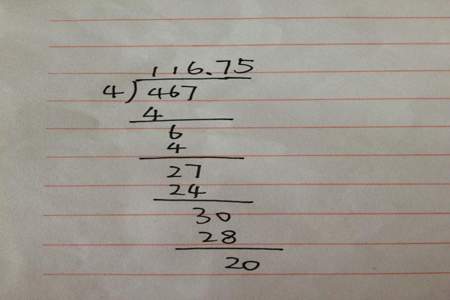 116.75
4)467
4
6
4
27
24
30
28
20